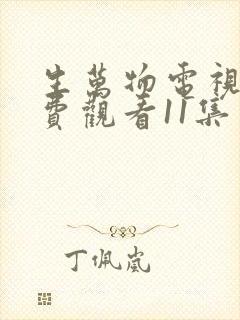 生萬物電視
費觀看11集
丁佩嵐